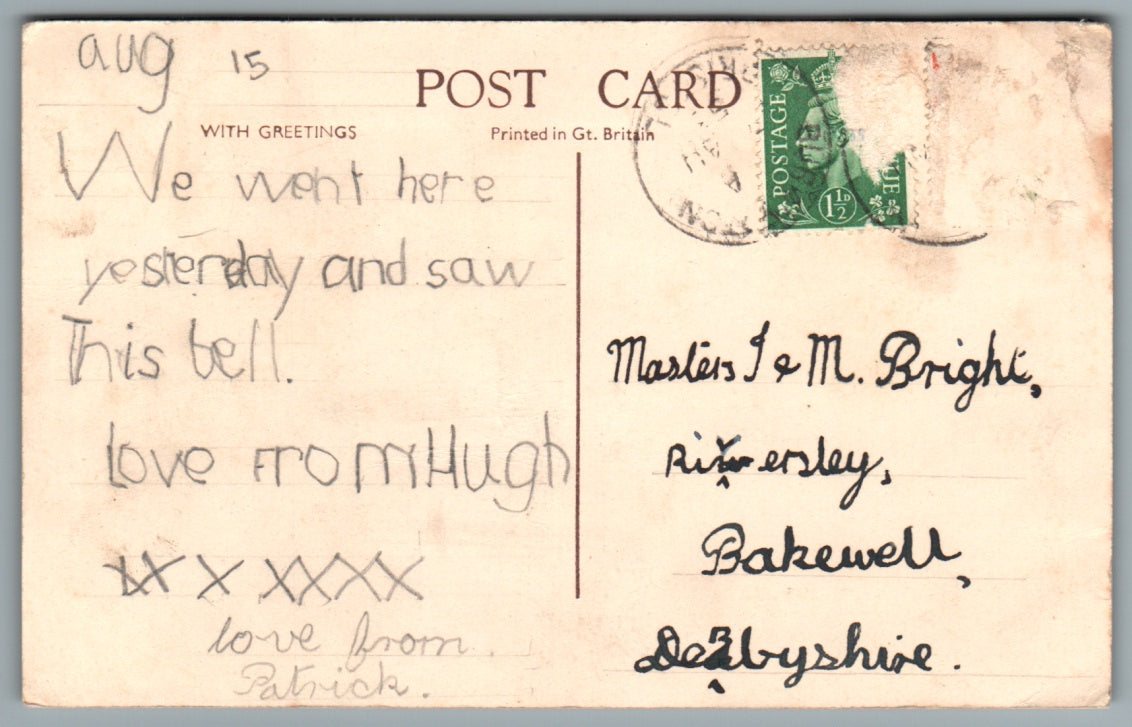 aug 15
POST CARD
WITH GREETINGS
Printed in Gt. Britain
POSTAGE
1½D
We went here
yesterday and saw
This bell.
Love From Hugh
xx x xxxx
love from.
Patrick.
Masters J & M. Bright,
Riversley,
Bakewell,
Derbyshire.